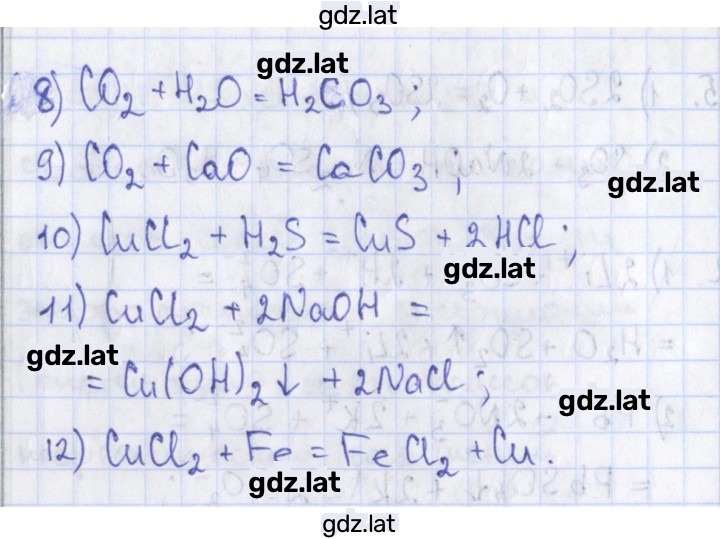 gdz.lat
gdz.lat
8) CO₂ + H₂O = H₂CO₃ ;
9) CO₂ + CaO = CaCO₃ ;
gdz.lat
10) CuCl₂ + H₂S = CuS + 2HCl ;
gdz.lat
11) CuCl₂ + 2NaOH =
gdz.lat
= Cu(OH)₂↓ + 2NaCl ;
gdz.lat
12) CuCl₂ + Fe = FeCl₂ + Cu.
gdz.lat
gdz.lat